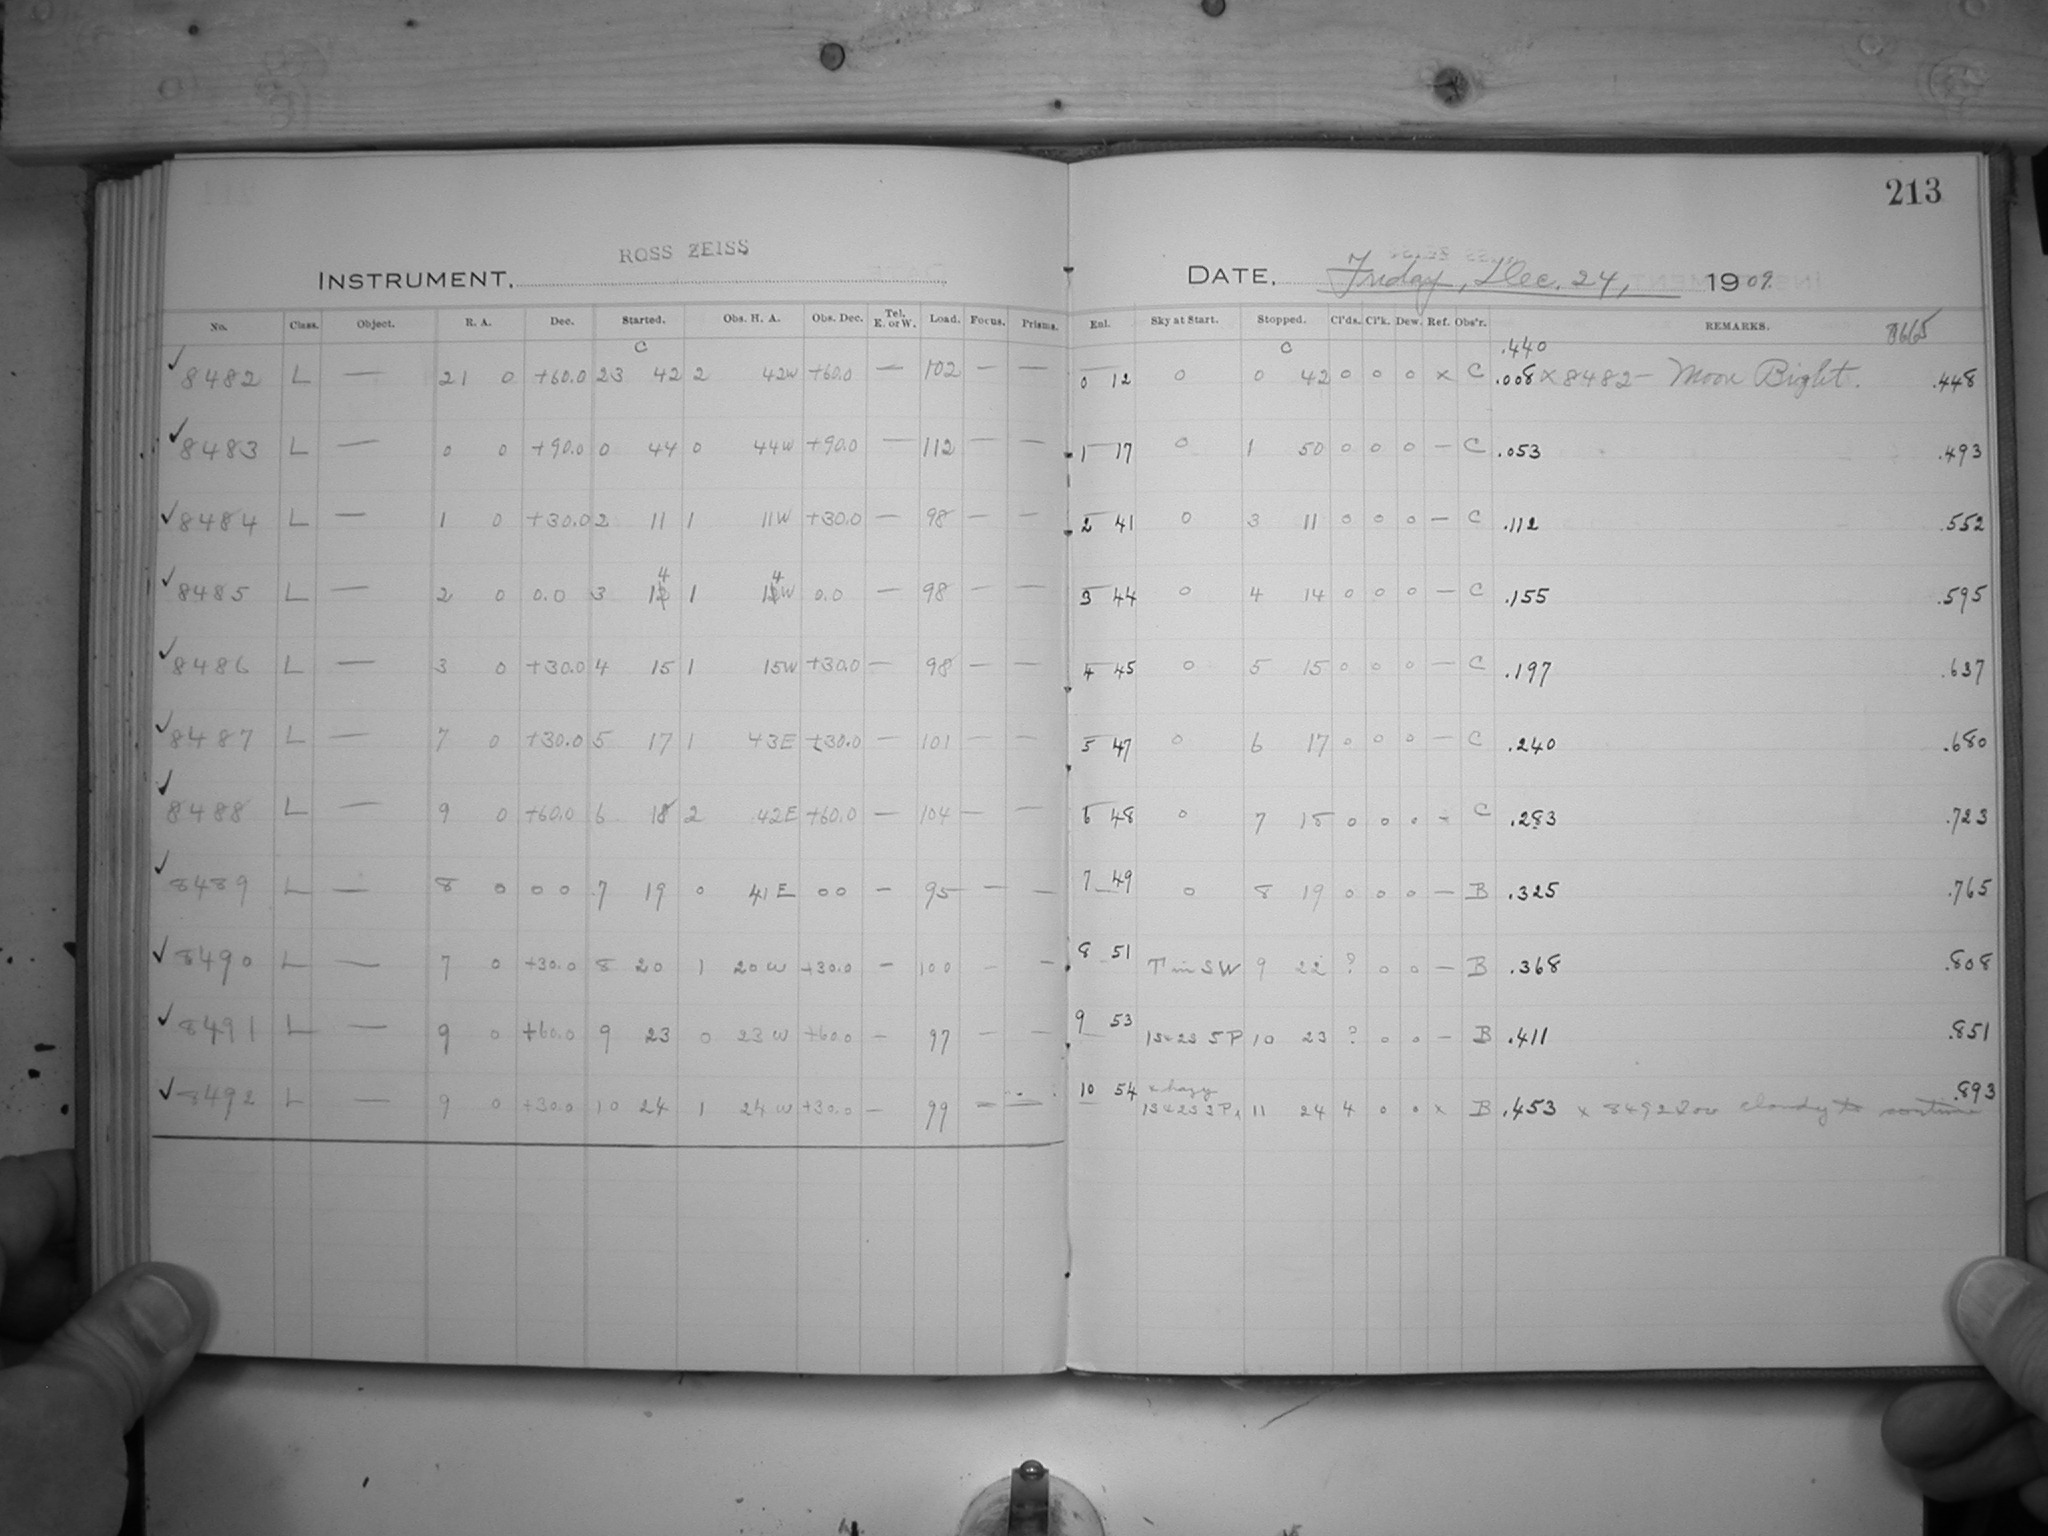 213
ROSS ZEISS
INSTRUMENT, DATE, Friday, Dec. 24, 1909.
No. Class. Object. R. A. Dec. Started. Obs. H. A. Obs. Dec. Tel. E. or W. Load. Focus. Prisms. Enl. Sky at Start. Stopped. Cl'ds. Cl'k. Dew. Ref. Obs'r. REMARKS. 8665
C C .440
✓ 8482 L — 21 0 +60.0 23 42 2 42W +60.0 — 102 — — 0 12 0 0 42 0 0 0 × C .008 × 8482 — Moon Bright. .448
✓ 8483 L — 0 0 +90.0 0 44 0 44W +90.0 — 112 — — 1 17 0 1 50 0 0 0 — C .053 .493
✓ 8484 L — 1 0 +30.0 2 11 1 11W +30.0 — 98 — — 2 41 0 3 11 0 0 0 — C .112 .552
✓ 8485 L — 2 0 0.0 3 14 1 14W 0.0 — 98 — — 3 44 0 4 14 0 0 0 — C .155 .595
✓ 8486 L — 3 0 +30.0 4 15 1 15W +30.0 — 98 — — 4 45 0 5 15 0 0 0 — C .197 .637
✓ 8487 L — 7 0 +30.0 5 17 1 43E +30.0 — 101 — — 5 47 0 6 17 0 0 0 — C .240 .680
✓ 8488 L — 9 0 +60.0 6 18 2 42E +60.0 — 104 — — 6 48 0 7 18 0 0 0 — C .283 .723
✓ 8489 L — 8 0 0 0 7 19 0 41E 0 0 — 95 — — 7 49 0 8 19 0 0 0 — B .325 .765
✓ 8490 L — 7 0 +30.0 8 20 1 20W +30.0 — 100 — — 8 51 T in SW 9 22 ? 0 0 — B .368 .808
✓ 8491 L — 9 0 +60.0 9 23 0 23W +60.0 — 97 — — 9 53 5P 10 23 ? 0 0 — B .411 .851
× hazy .893
✓ 8492 L — 9 0 +30.0 10 24 1 24W +30.0 — 99 — — 10 54 11 24 4 0 0 × B .453 × 8492 Too cloudy to continue